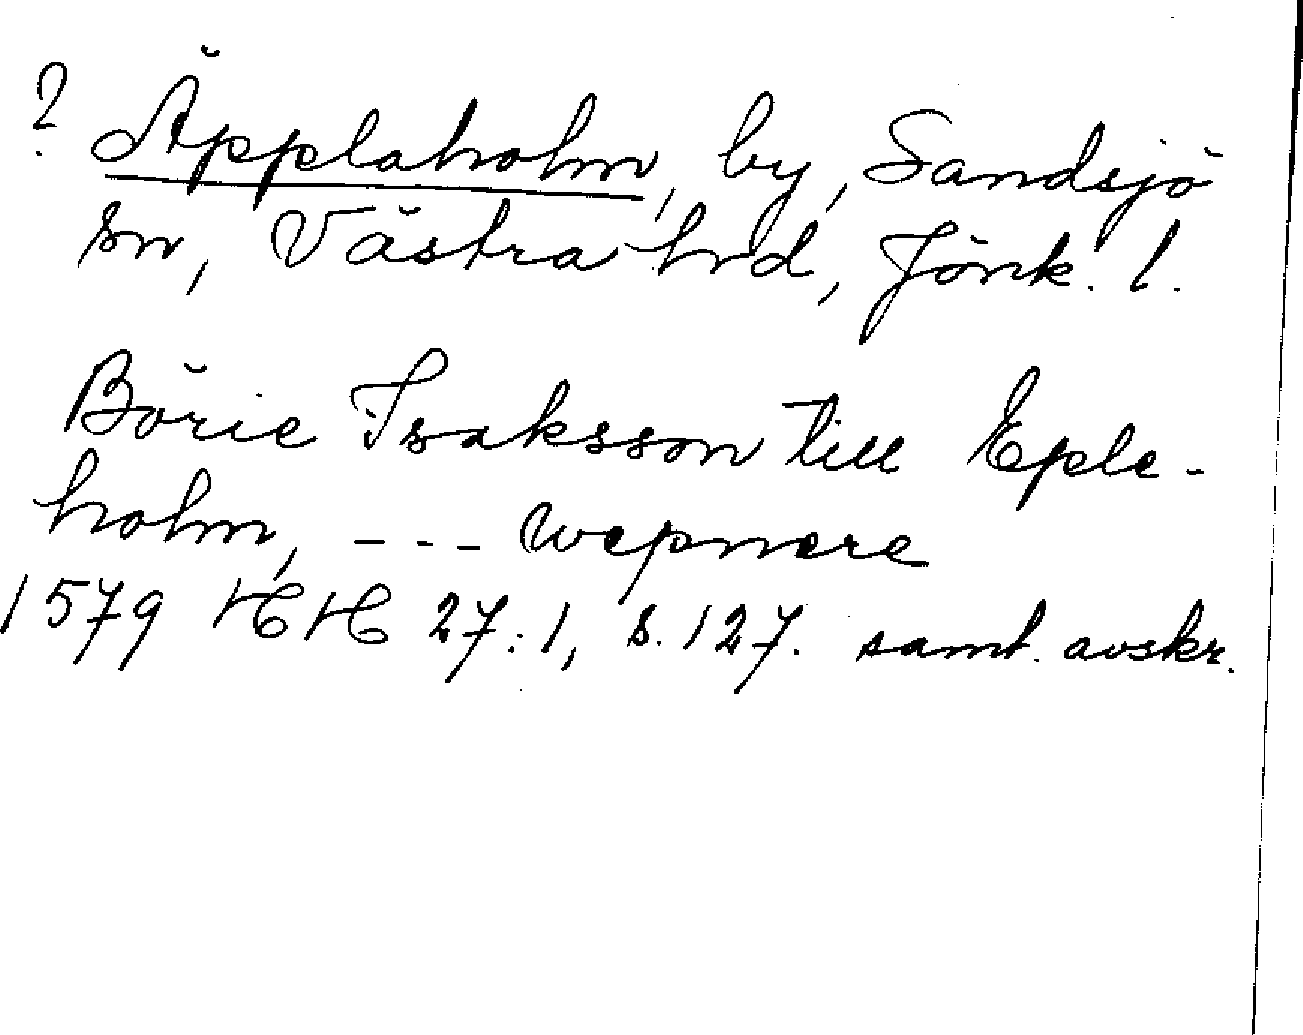 ? Äpplaholm, by, Sandsjö
sn, Västra hrd, Jönk. l.
Börie Isaksson till Eple-
holm, --- wepnere
1579 HH 27:1, s. 127. samt. avskr.